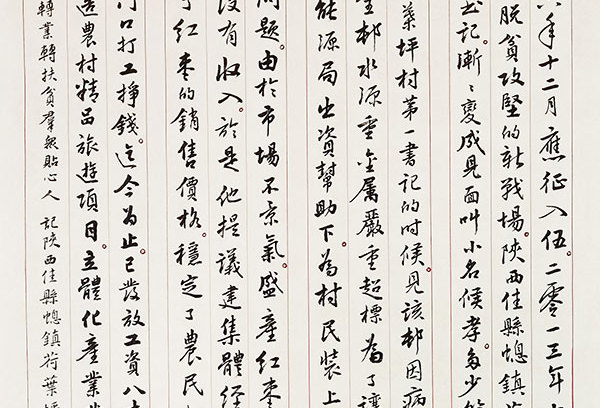 年十二月應征入伍。二零一三年
脱貧攻堅的新戰場。陝西佳縣螅鎮
書記。漸〻變成見面叫小名。候孝多少
葉坪村第一書記的时候見該邨因病
邨水源重金属嚴重超標。為了讓
能源局出資幫助下。為村民裝上
问题。由於市場不景氣。盛産红枣
没有收入。於是他提議建集體經
了红枣的銷售價格。穩定了農民
门口打工掙錢。迄今為止已發放工資八
造農村精品旅遊項目。立體化産業
轉業轉扶貧羣衆貼心人 記陝西佳縣螅鎮荷葉坪